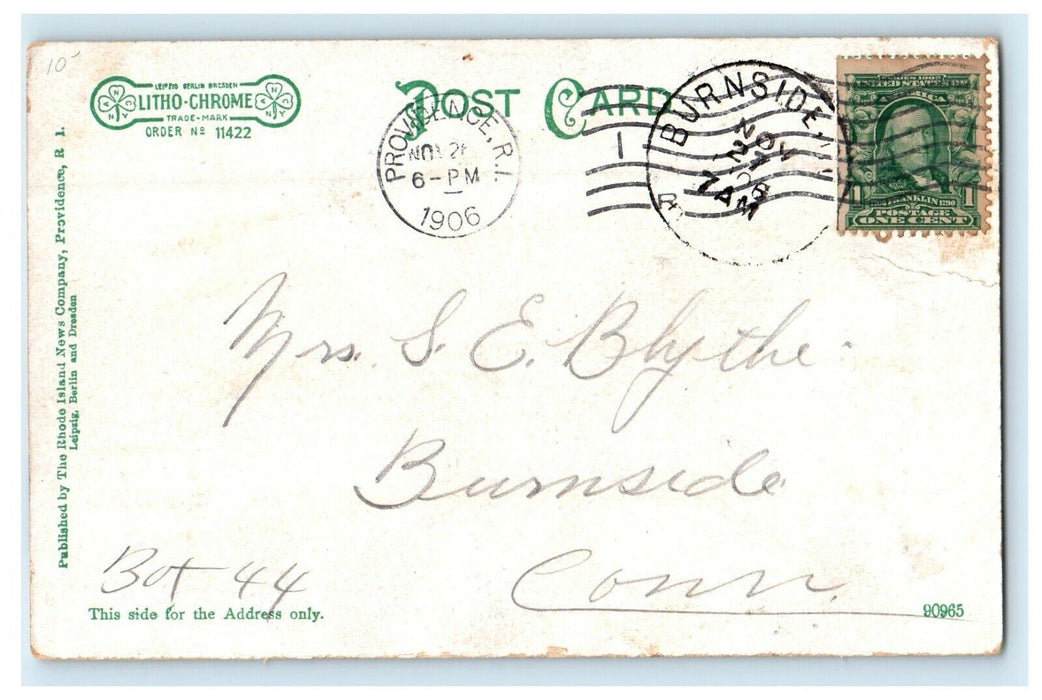 10-
LEIPZIG BERLIN DRESDEN
LITHO-CHROME
TRADE-MARK
ORDER Nº 11422
POST CARD
PROVIDENCE, R.I.
NOV 26
6-PM
1906
1
BURNSIDE,
NOV
27
7AM
SERIES 1902
UNITED STATES OF AMERICA
1 FRANKLIN 1790 1
POSTAGE
ONE CENT
Published by The Rhode Island News Company, Providence, R. I.
Leipzig, Berlin and Dresden
Mrs. S. E. Blythe
Burnside
Conn.
Box 44
This side for the Address only.
90965